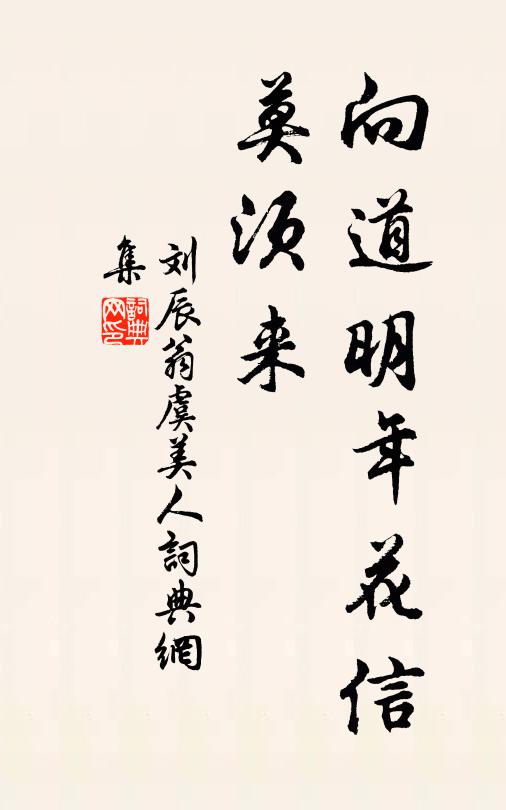 向道明年花信
莫须来
刘辰翁虞美人詞典網
集
詞典网印